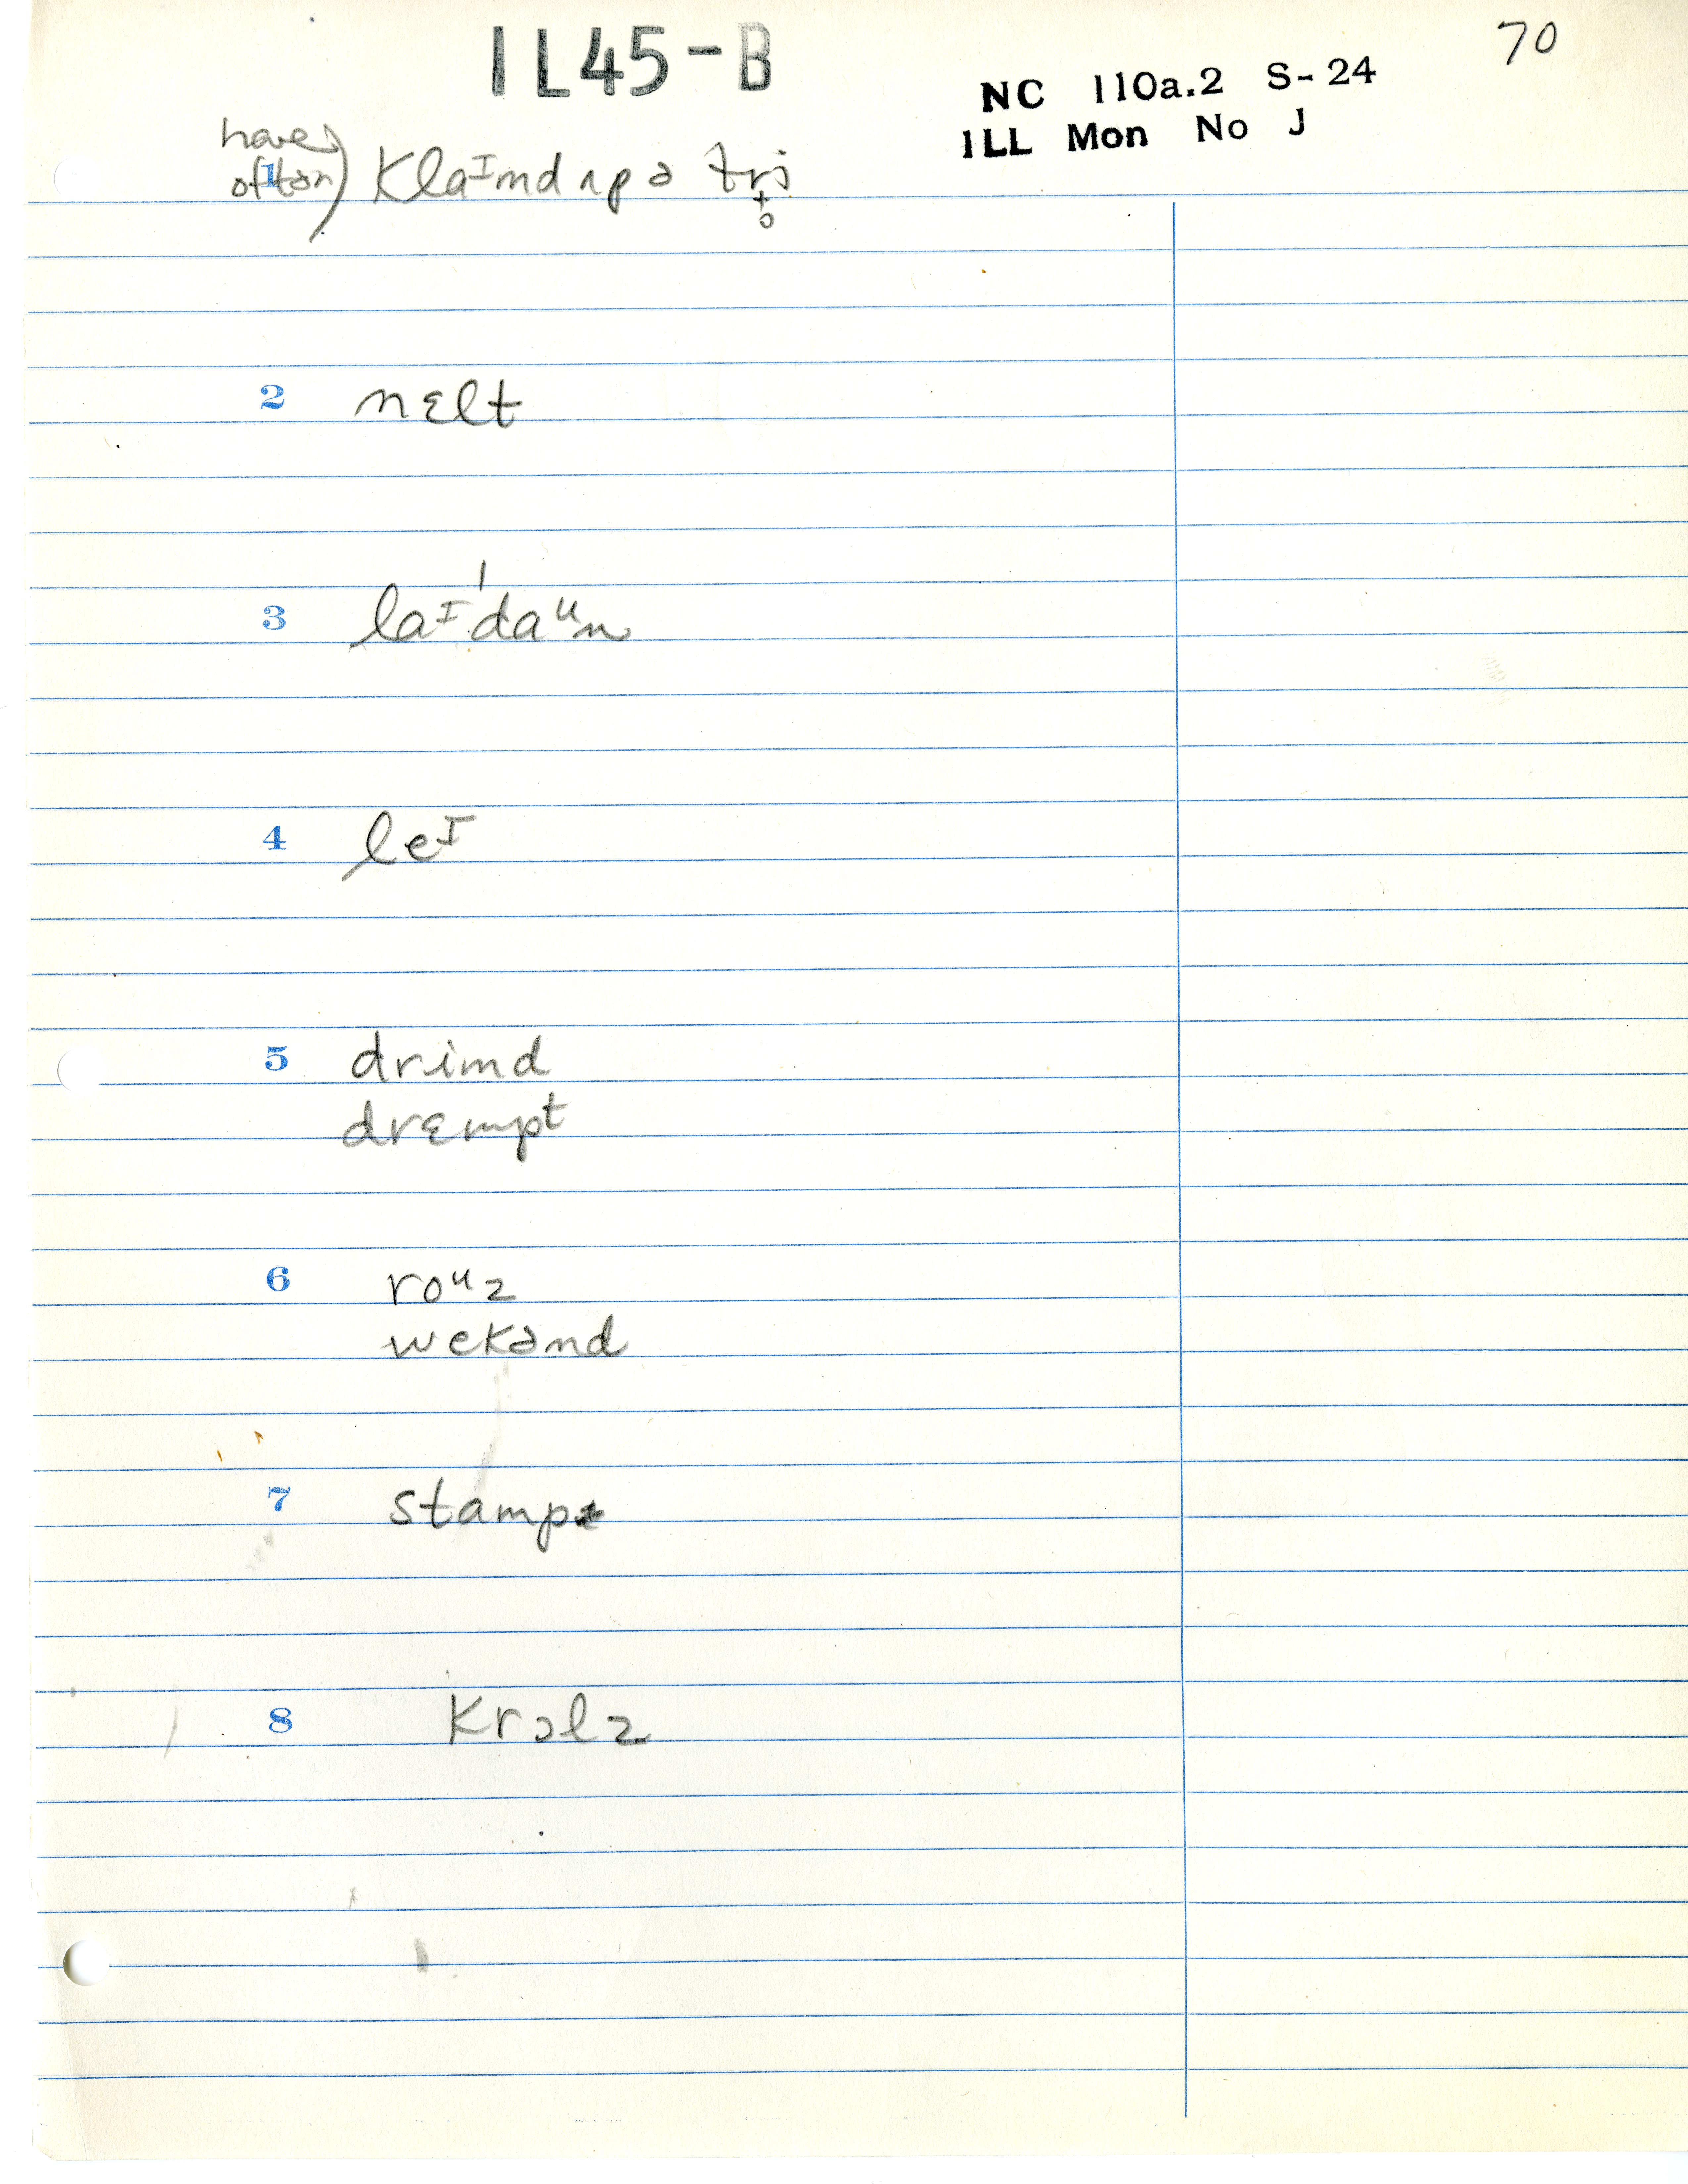 1L45-B
70
NC 110a.2 S-24
ILL Mon No J
have
oftən) 1 klaᴵmd ʌp ə tri
2 nɛlt
3 laᴵ'daᵘn
4 leᴵ
5 drimd
drɛmpt
6 roᵘz
wekənd
7 stamp
8 krɔlz